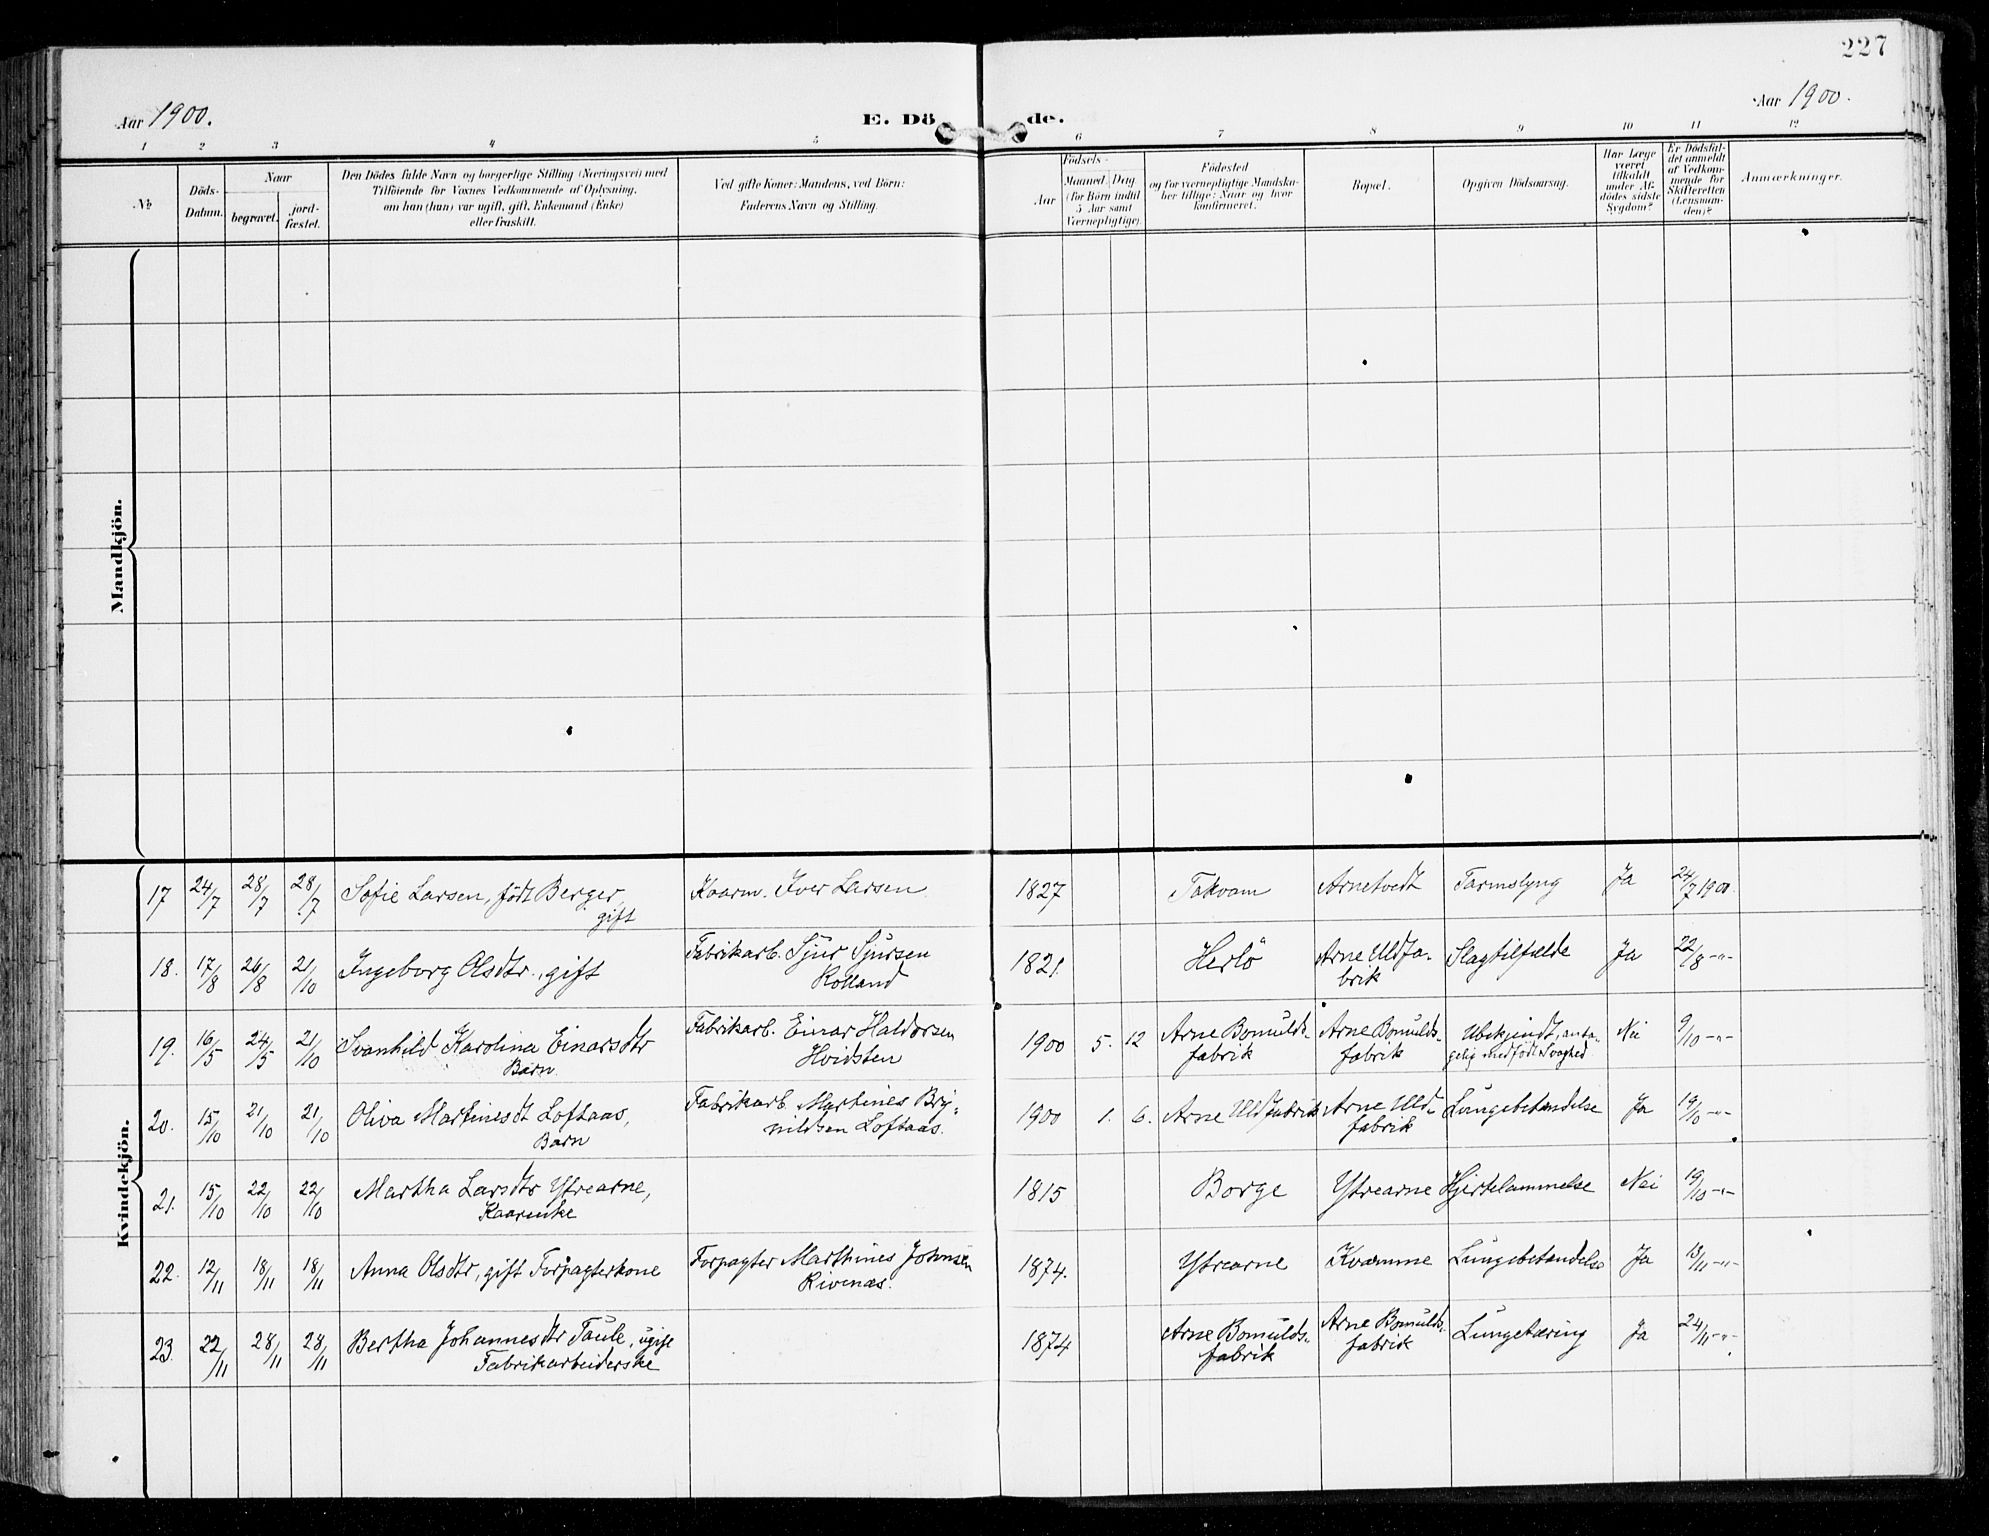 227
Aar 1900.
E. Dö de.
Aar 1900.
1 2 3 4 5 6 7 8 9 10 11 12
No
Döds-
Datum.
Naar
begravet.
jord-
fæstet.
Den Dödes fulde Navn og borgerlige Stilling (Næringsvei) med
Tilföiende for Voxnes Vedkommende af Oplysning,
om han (hun) var ugift, gift, Enkemand (Enke)
eller fraskilt.
Ved gifte Koner: Mandens, ved Börn:
Faderens Navn og Stilling.
Födsels-
Aar
Maaned. Dag
(for Börn indtil
5 Aar samt
Værnepligtige)
Födested
og for værnepligtige Mandska-
ber tillige: Naar og hvor
konfirmeret.
Bopæl.
Opgiven Dödsaarsag.
Har Læge
været
tilkaldt
under Af-
dödes sidste
Sygdom?
Er Dödsfal-
det anmeldt
af Vedkom-
mende for
Skifteretten
(Lensman-
den)?
Anmærkninger.
Mandkjön.
Kvindekjön.
17 24/7 28/7 28/7 Sofie Larsen, födt Berger, Kaarm. Iver Larsen 1827 Takvam Arnetvedt Tarmslyng Ja 24/7 1900.
gift
18. 17/8 26/8 21/10 Ingeborg Olsdtr., gift Fabrikarb. Sjur Sjursen 1821. Herlö Arne Uldfa- Slagtilfælde Ja 22/8 -"-
Rolland brik
19. 16/5 24/5 21/10 Svanhild Karolina Einarsdtr Fabrikarb. Einar Haldorsen 1900 5. 12 Arne Bomulds- Arne Bomulds- Ubekjendt, anta- Nei 9/10 -"-
Barn. Hvidsten fabrik fabrik gelig medfödt Svaghed
20. 15/10 21/10 21/10 Oliva Martinesdt Loftaas, Fabrikarb. Martines Bry- 1900 1. 6. Arne Uldfabrik Arne Uld- Lungebetændelse Ja 19/10 -"-
Barn nildsen Loftaas. fabrik
21. 15/10 22/10 22/10 Martha Larsdtr Ytrearne, 1815 Borge Ytrearne Hjertelammelse Nei 19/10 -"-
Kaarenke
22. 12/11 18/11 18/11 Anna Olsdtr, gift Forpagterkone Forpagter Marthines Johnsen 1874. Ytrearne Kvamme Lungebetændelse Ja 13/11 -"-
Rivenæs.
23. 22/11 28/11 28/11 Bertha Johannesdtr Taule, ugift 1874 Arne Bomulds- Arne Bomulds- Lungetæring Ja 24/11 -"-
Fabrikarbeiderske fabrik fabrik